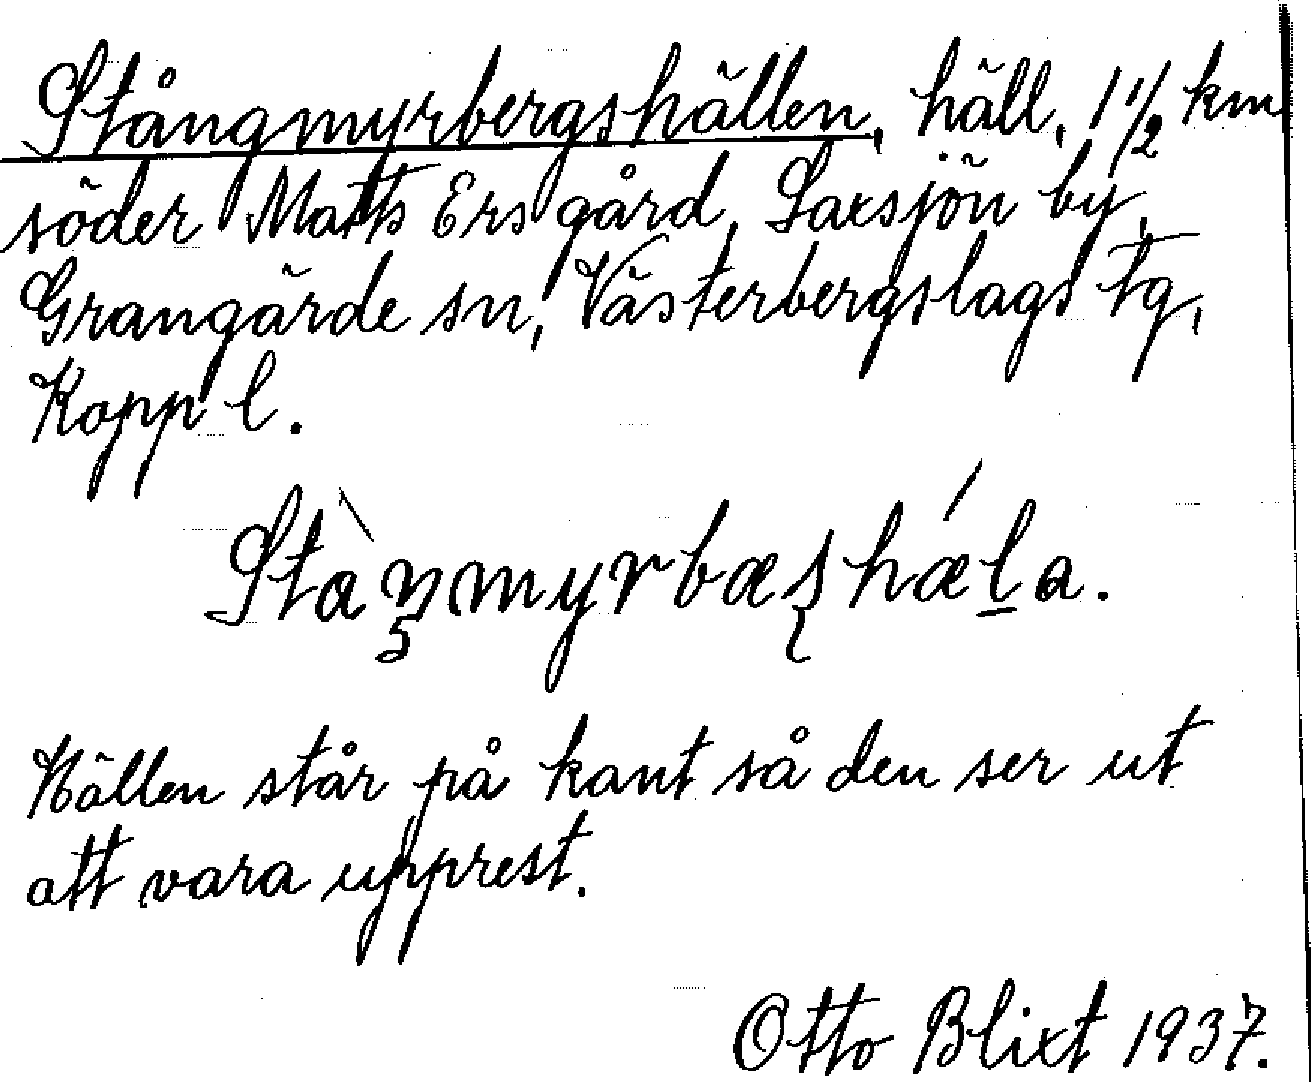 Stångmyrbergshällen, häll, 1 1/2 km
söder Matts Ers gård, Laxsjön by,
Grangärde sn, Västerbergslags tg,
Kopp l.
Hällen står på kant så den ser ut
att vara upprest.
Otto Blixt 1937.